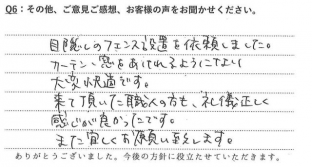 Q6：その他、ご意見ご感想、お客様の声をお聞かせください。
目隠しのフェンス設置を依頼しました。
カーテン、窓をあけれるようになり
大変快適です。
来て頂いた職人の方も、礼儀正しく
感じが良かったです。
また宜しくお願い致します。
ありがとうございました。今後の方針に役立たせていただきます。